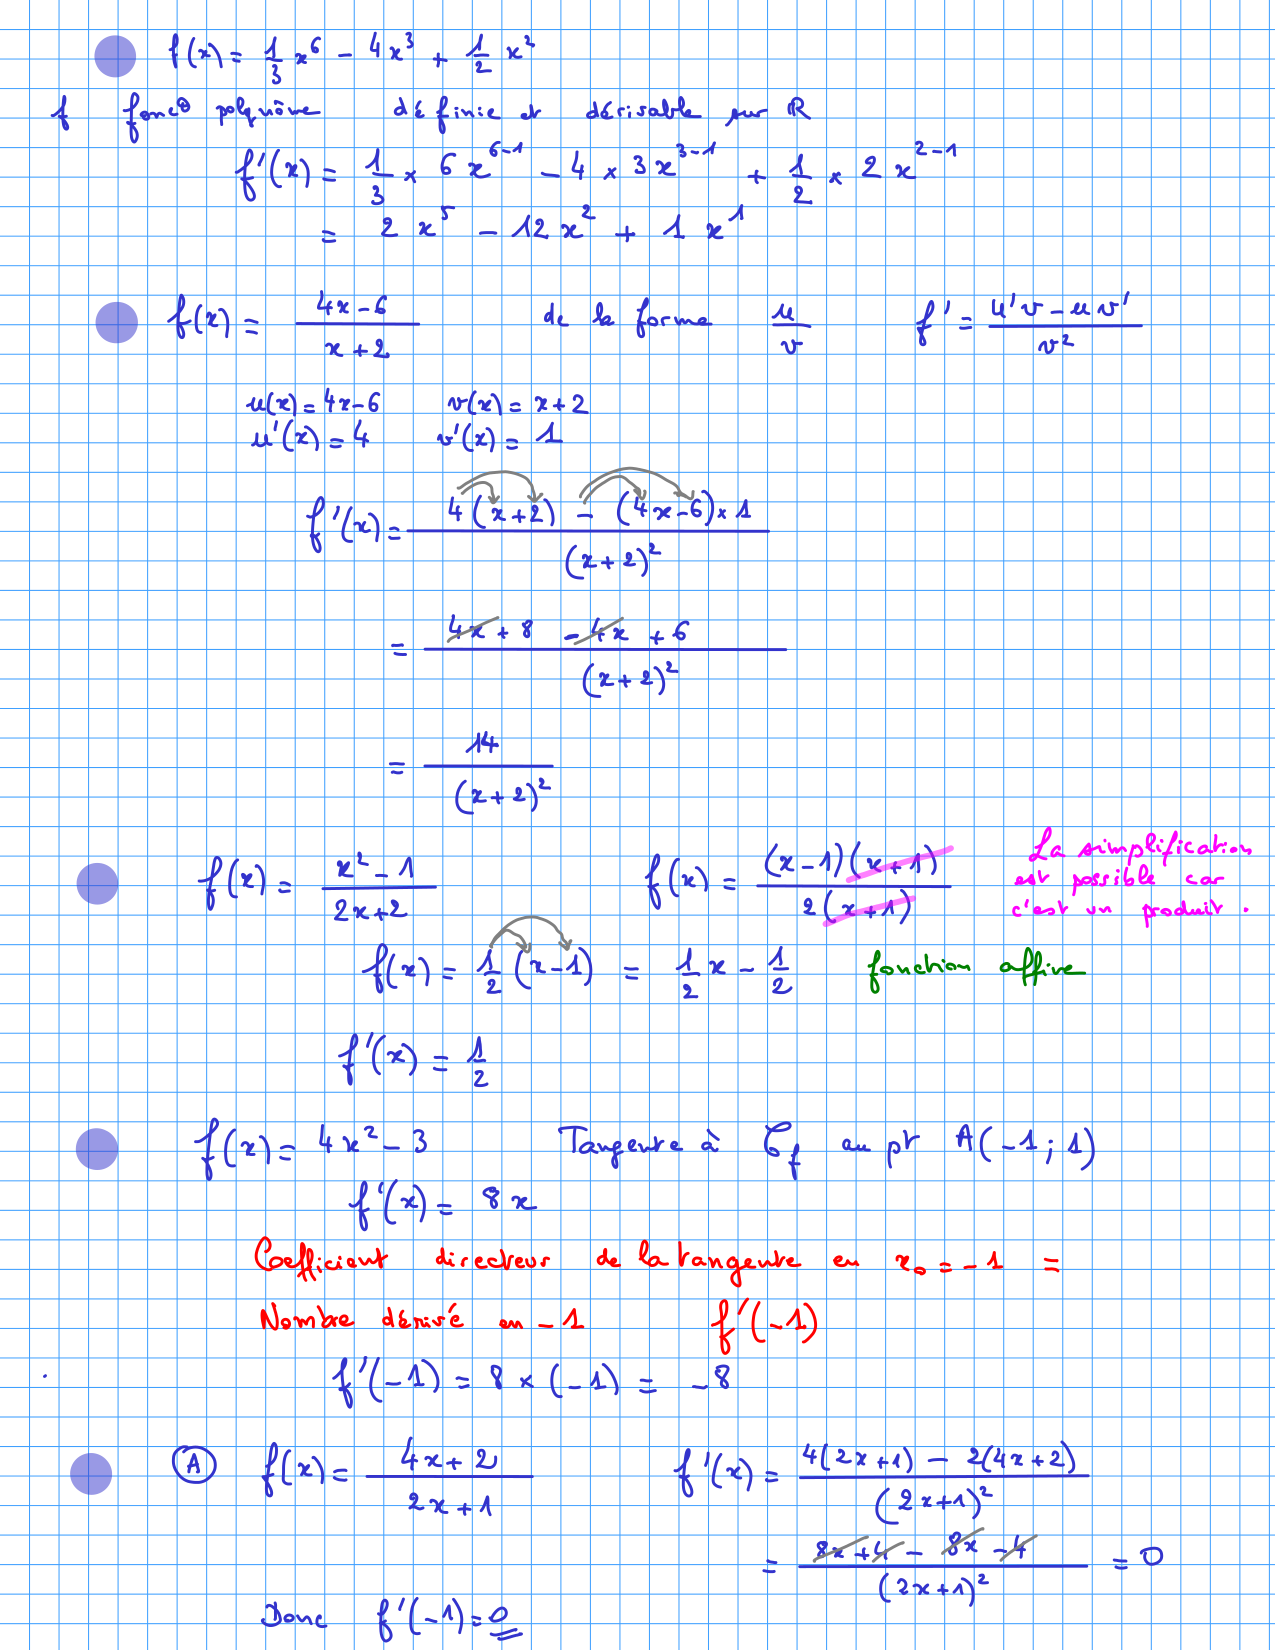 f(x) = 1/3 x⁶ - 4x³ + 1/2 x²
f fonc° polynôme définie et dérivable sur ℝ
f'(x) = 1/3 × 6x⁶⁻¹ - 4 × 3x³⁻¹ + 1/2 × 2x²⁻¹
= 2x⁵ - 12x² + 1x¹
f(x) = (4x-6)/(x+2) de la forme u/v f' = (u'v - uv')/v²
u(x) = 4x-6 v(x) = x+2
u'(x) = 4 v'(x) = 1
f'(x) = (4(x+2) - (4x-6)×1)/(x+2)²
= (4x + 8 - 4x + 6)/(x+2)²
= 14/(x+2)²
f(x) = (x²-1)/(2x+2) f(x) = ((x-1)(x+1))/(2(x+1))
La simplification
est possible car
c'est un produit.
f(x) = 1/2 (x-1) = 1/2 x - 1/2 fonction affine
f'(x) = 1/2
f(x) = 4x² - 3 Tangente à 𝒞f au pt A(-1; 1)
f'(x) = 8x
Coefficient directeur de la tangente en x₀ = -1 =
Nombre dérivé en -1 f'(-1)
f'(-1) = 8 × (-1) = -8
A f(x) = (4x+2)/(2x+1) f'(x) = (4(2x+1) - 2(4x+2))/(2x+1)²
= (8x + 4 - 8x - 4)/(2x+1)² = 0
Donc f'(-1) = 0